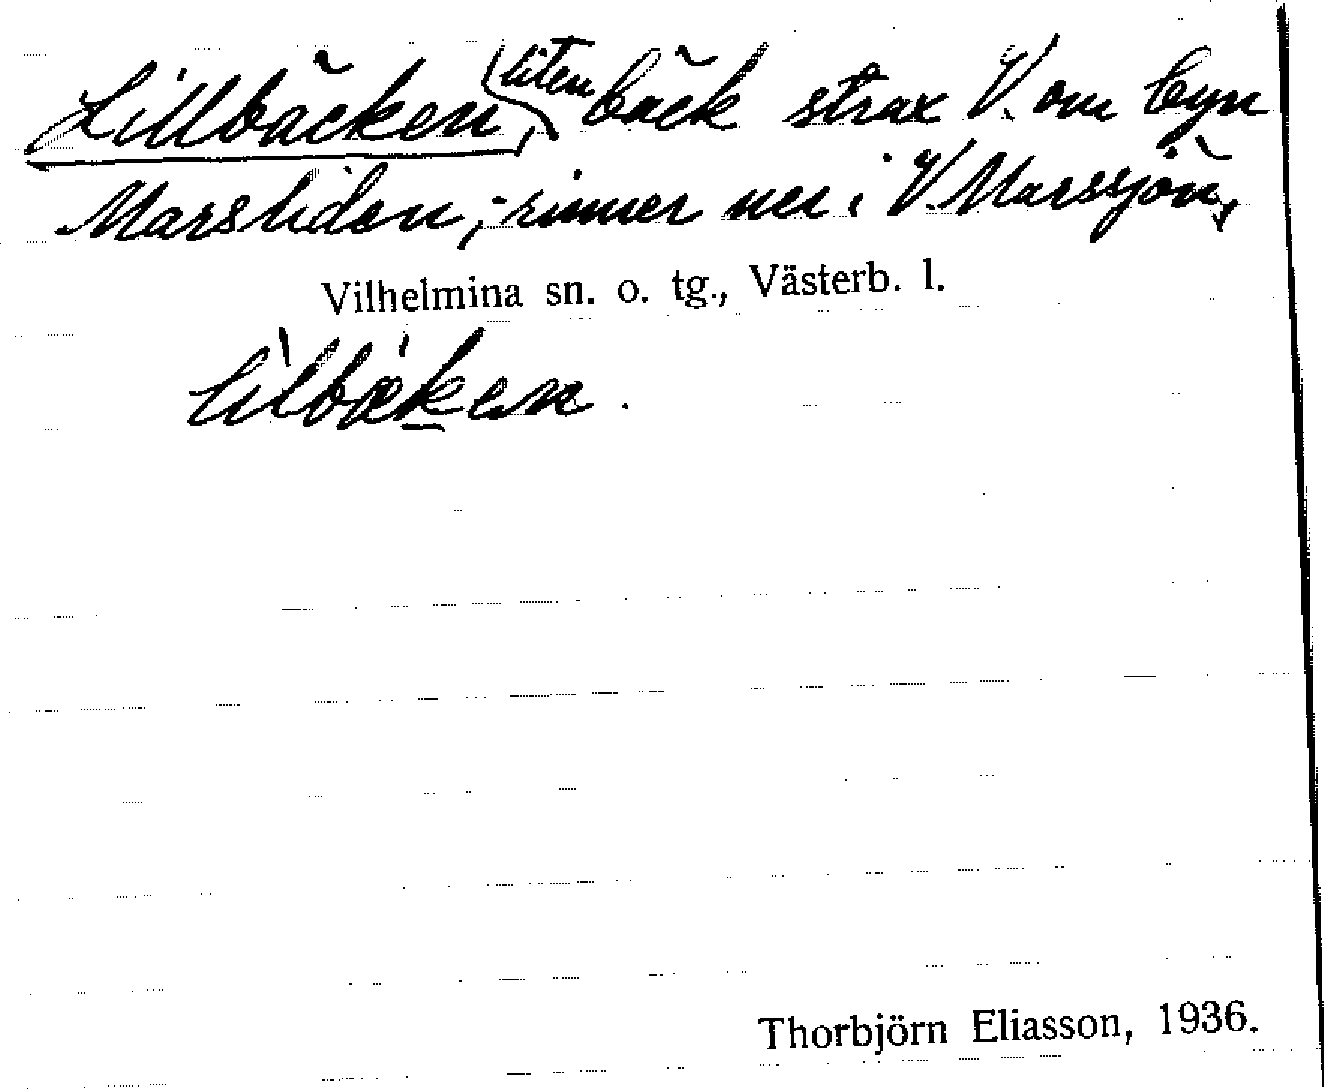 Lillbäcken, liten bäck strax V. om byn
Marsliden, rinner ner i V. Marssjön,
Vilhelmina sn. o. tg., Västerb. l.
lìlbæ̀ken.
Thorbjörn Eliasson, 1936.